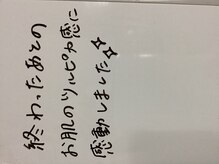 終わったあとの
お肌のツルピカ感に
感動しました☆